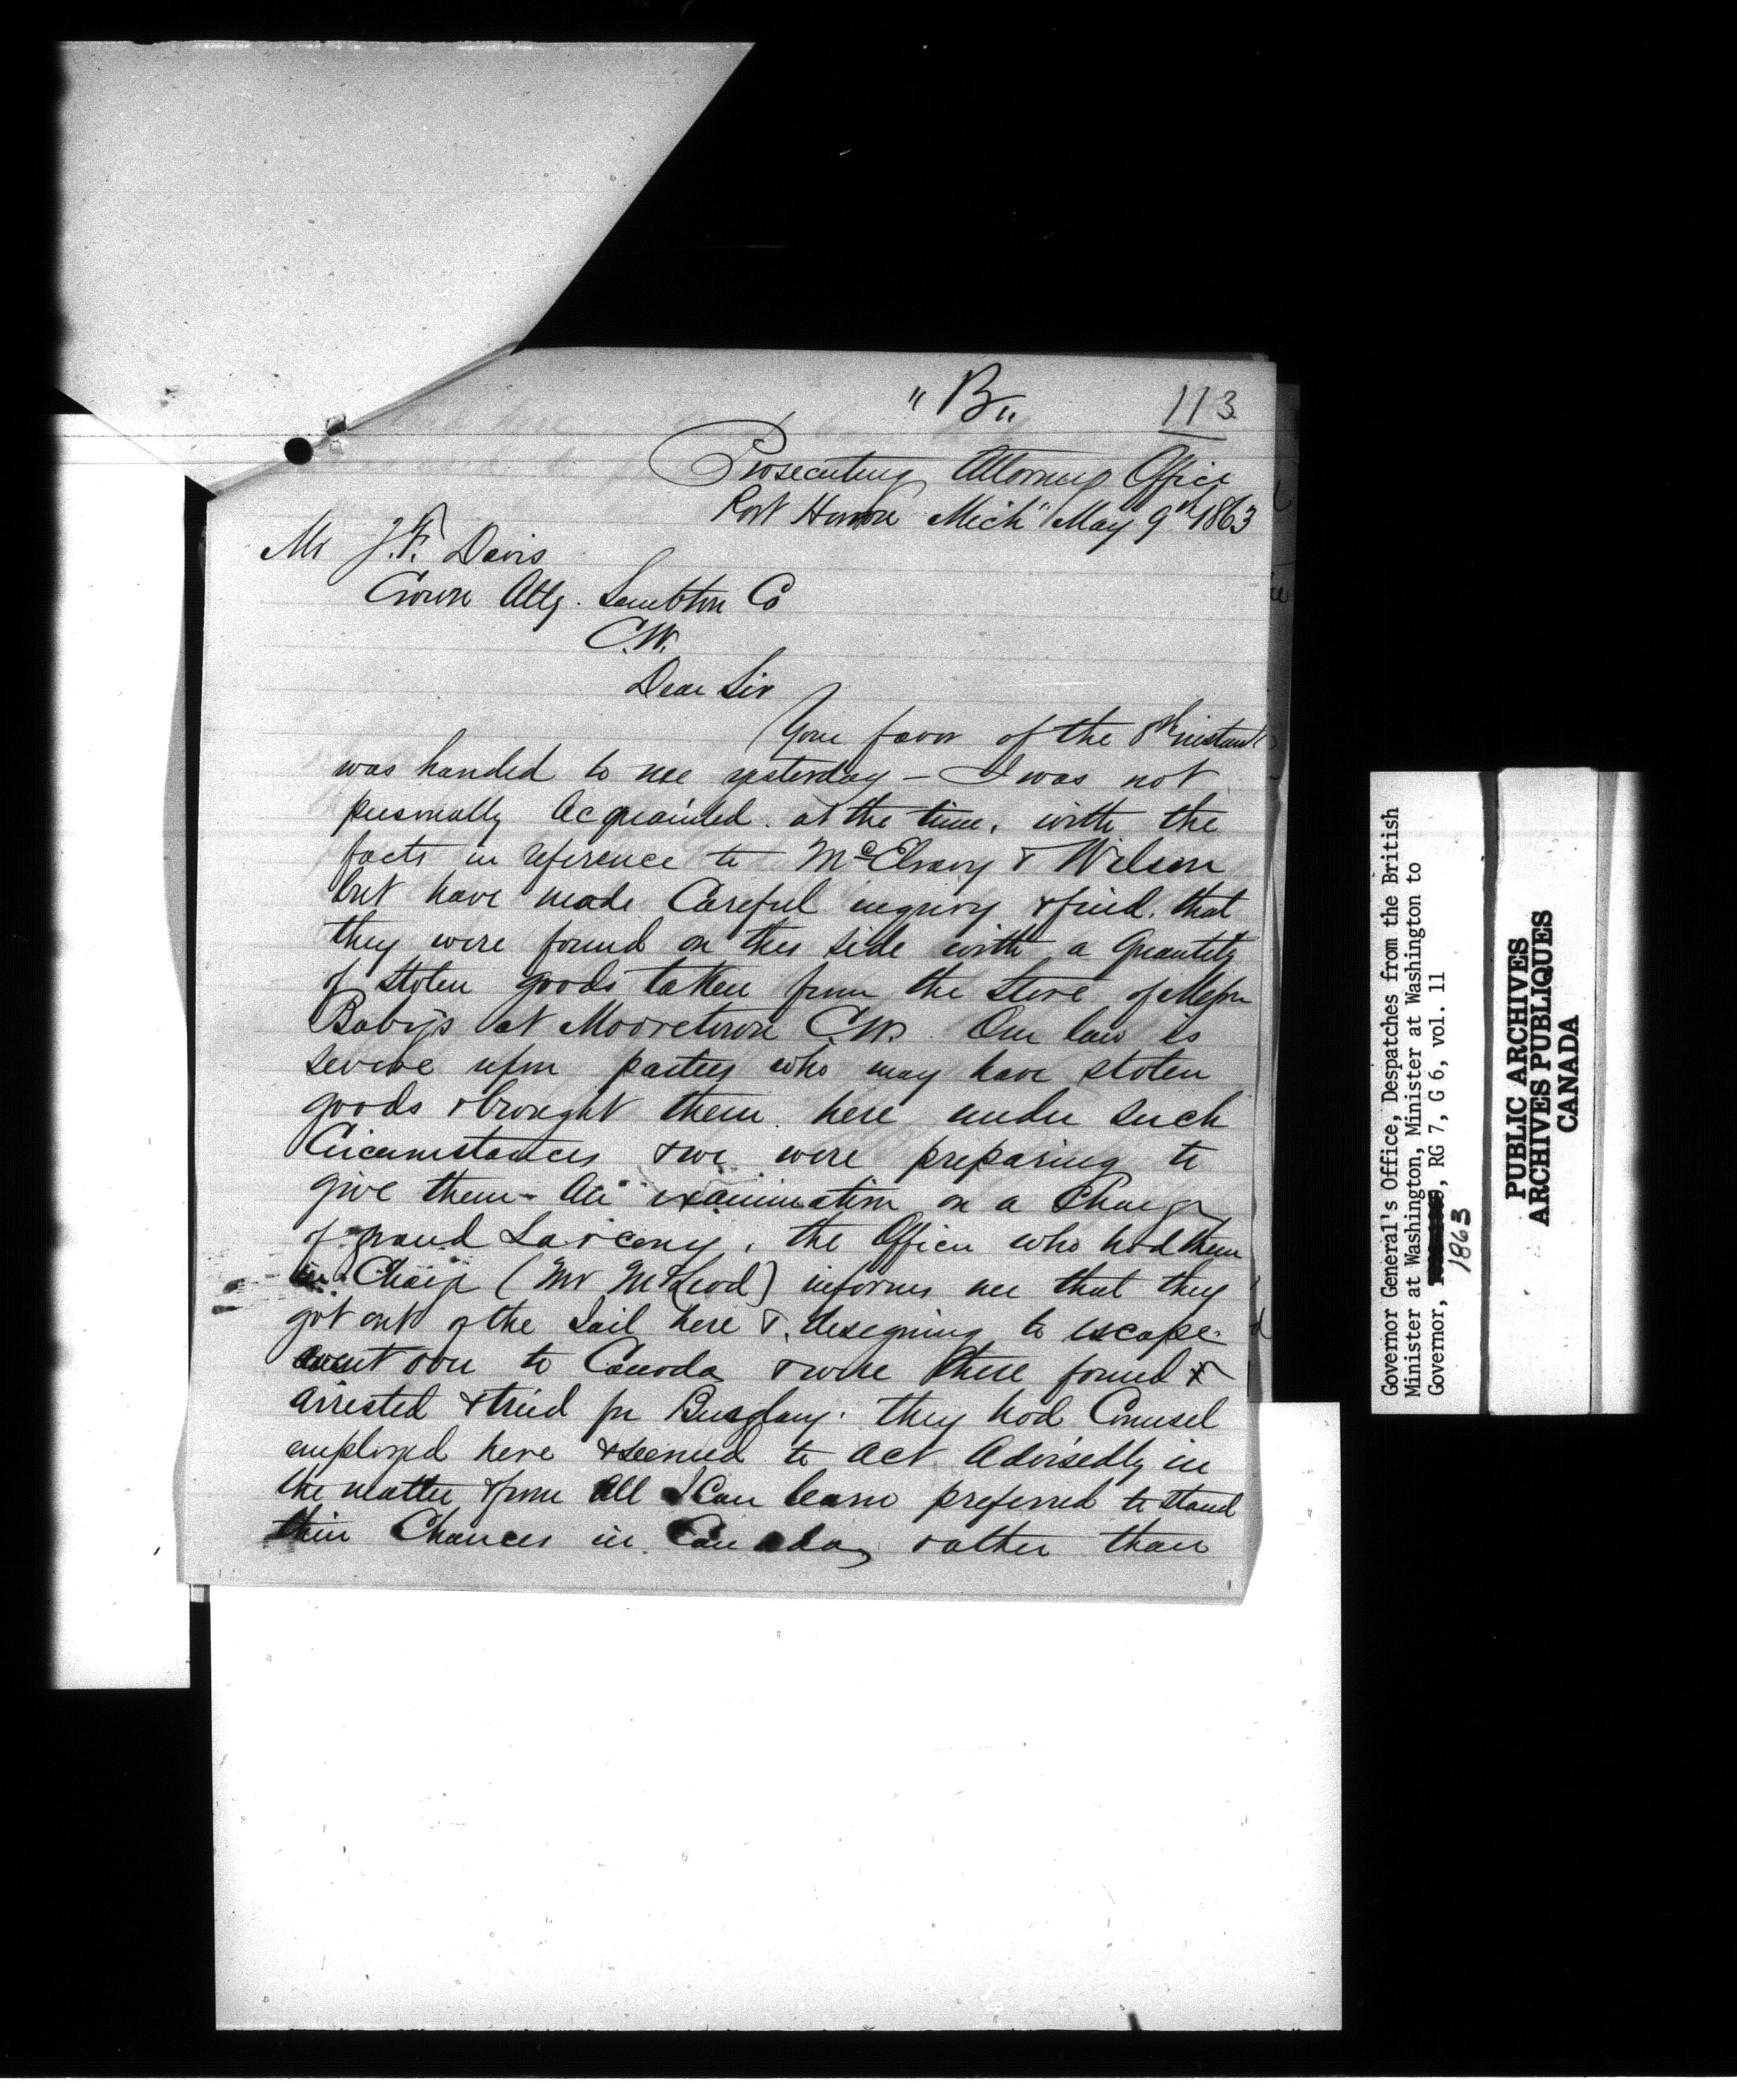 "B"
113
Prosecuting Attorneys Office
Port Huron Mich" May 9th 1863
Mr J. F. Davis
Crown Atty. Lambton Co
C.W.
Dear Sir
Your favor of the 8th instant
was handed to me yesterday - I was not
personally acquainted at the time, with the
facts in reference to McElravy & Wilson
but have made Careful inquiry & find. that
they were found on this side with a Quantity
of stolen goods taken from the store of Messrs
Baby's at Mooretown C.W. Our law is
severe upon parties who may have stolen
goods & brought them here under such
Circumstances & we were preparing to
give them - an examination on a Charge
of grand Larceny. the Officer who had them
in Charge (Mr McLeod) informs me that they
got out of the Jail here & designing to escape
went over to Canada & were there found &
arrested & tried for Burglary. they had Counsel
employed here & seemed to act Advisedly in
the matter & from all I Can learn preferred to stand
their Chances in Canada, rather than
Governor General's Office, Despatches from the British
Minister at Washington, Minister at Washington to
Governor, RG 7, G 6, vol. 11
1863
PUBLIC ARCHIVES
ARCHIVES PUBLIQUES
CANADA